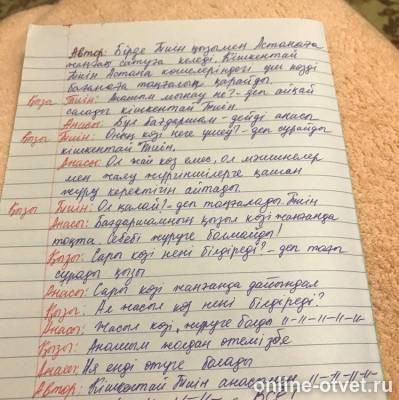 Автор: Бірде Тиін қызымен Астанаға
жаңғақ сатуға келеді. Кішкентай
Тиін Астана көшелеріндегі үш көзді
бағанаға таңғалып қарайды.
Қызы Тиін: Анашым мынау не? - деп айқай
салады кішкентай Тиін.
Анасы: Бұл Бағдаршам - дейді анасы
Қызы Тиін: Оның көзі неге үшеу? - деп сұрайды
кішкентай Тиін.
Анасы: Ол жай көз емес, ол машиналар
мен жаяу жүргіншілерге қашан
жүру керектігін айтады.
Қызы Тиін: Ол қалай? - деп таңғалады Тиін
Анасы: Бағдаршамның қызыл көзі жанғанда
тоқта. Себебі жүруге болмайды!
Қызы: Сары көзі нені білдіреді? - деп тағы
сұрады қызы
Анасы: Сары көзі жанғанда дайындал
Қызы: Ал жасыл көз нені білдіреді?
Анасы: Жасыл көзі жүруге болды 11-11-11-11-11-
Қызы: Анашым жолдан өтеміз де
Анасы: Ия енді өтуге болады
Автор: Кішкентай Тиін анасымен 11-11-11-11-
ВСЁ!
online-otvet.ru